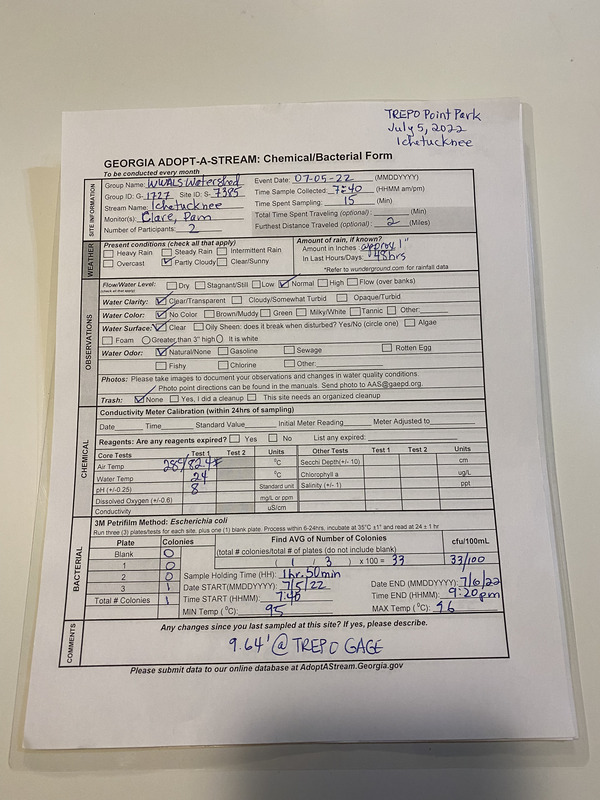 TREPO Point Park
July 5, 2022
Ichetucknee
GEORGIA ADOPT-A-STREAM: Chemical/Bacterial Form
To be conducted every month
SITE INFORMATION
Group Name: WWALS Watershed
Group ID: G-1727 Site ID: S-7385
Stream Name: Ichetucknee
Monitor(s): Clare, Pam
Number of Participants: 2
Event Date: 07-05-22 (MMDDYYYY)
Time Sample Collected: 7:40 (HHMM am/pm)
Time Spent Sampling: 15 (Min)
Total Time Spent Traveling (optional): (Min)
Furthest Distance Traveled (optional): 2 (Miles)
WEATHER
Present conditions (check all that apply)
Heavy Rain Steady Rain Intermittent Rain
Overcast Partly Cloudy Clear/Sunny
Amount of rain, if known?
Amount in Inches: approx 1"
In Last Hours/Days: 48hrs
*Refer to wunderground.com for rainfall data
OBSERVATIONS
Flow/Water Level: Dry Stagnant/Still Low Normal High Flow (over banks)
(check all that apply)
Water Clarity: Clear/Transparent Cloudy/Somewhat Turbid Opaque/Turbid
Water Color: No Color Brown/Muddy Green Milky/White Tannic Other:
Water Surface: Clear Oily Sheen: does it break when disturbed? Yes/No (circle one) Algae
Foam Greater than 3" high It is white
Water Odor: Natural/None Gasoline Sewage Rotten Egg
Fishy Chlorine Other:
Photos: Please take images to document your observations and changes in water quality conditions.
Photo point directions can be found in the manuals. Send photo to AAS@gaepd.org.
Trash: None Yes, I did a cleanup This site needs an organized cleanup
CHEMICAL
Conductivity Meter Calibration (within 24hrs of sampling)
Date Time Standard Value Initial Meter Reading Meter Adjusted to
Reagents: Are any reagents expired? Yes No List any expired:
Core Tests Test 1 Test 2 Units Other Tests Test 1 Test 2 Units
Air Temp 28°/82.4F °C Secchi Depth(+/- 10) cm
Water Temp 24 °C Chlorophyll a ug/L
pH (+/-0.25) 8 Standard unit Salinity (+/- 1) ppt
Dissolved Oxygen (+/-0.6) mg/L or ppm
Conductivity uS/cm
BACTERIAL
3M Petrifilm Method: Escherichia coli
Run three (3) plates/tests for each site, plus one (1) blank plate. Process within 6-24hrs, incubate at 35°C ±1° and read at 24 ± 1 hr
Plate Colonies Find AVG of Number of Colonies cfu/100mL
Blank 0 (total # colonies/total # of plates (do not include blank)
1 0 ( 1 / 3 ) x 100 = 33 33/100
2 0 Sample Holding Time (HH): 1hr. 50min
3 1 Date START(MMDDYYYY): 7/5/22 Date END (MMDDYYYY): 7/6/22
Total # Colonies 1 Time START (HHMM): 7:40 Time END (HHMM): 9:20pm
MIN Temp (°C): 95 MAX Temp (°C): 96
COMMENTS
Any changes since you last sampled at this site? If yes, please describe.
9.64' @ TREPO GAGE
Please submit data to our online database at AdoptAStream.Georgia.gov